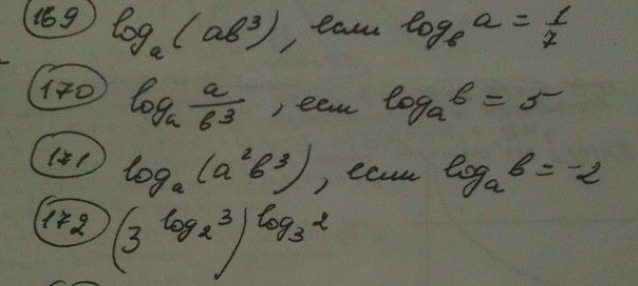 169 logₐ(ab³), если log_b a = 1/7
170 logₐ a/b³, если logₐ b = 5
171 logₐ(a²b³), если logₐ b = -2
172 (3^(log₂ 3))^(log₃ 2)